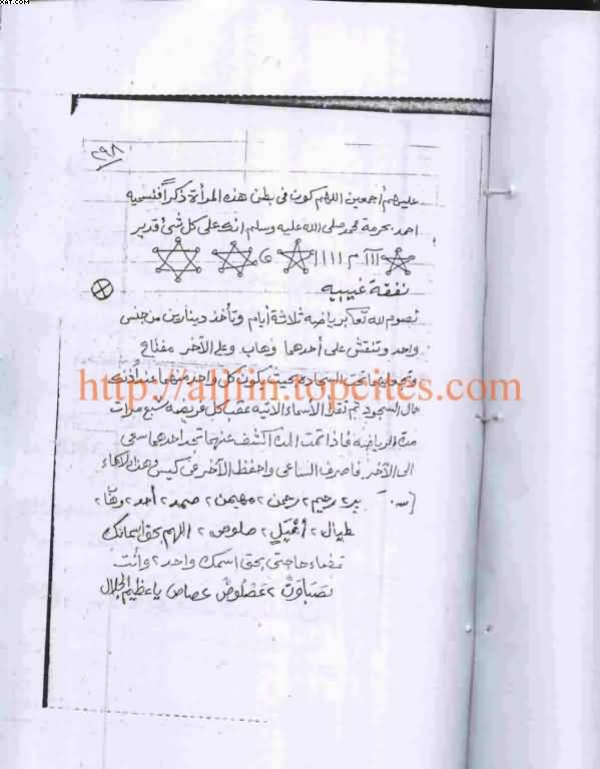 xat.com
٢٩٨
عليهم أجمعين اللهم كون فى بطن هذه المرأة ذكراً فنسميه
احمد بحرمة محمد صلى الله عليه وسلم انك على كل شئ قدير
نفقة غيبيه
تصوم لله تعا برياضه ثلاثة أيام وتأخذ دينارين من جنس
واحد وتنقش على أحدهما وهاب وعلى الآخر مفتاح
وتجعلهما تحت السجادة بحيث يكون كل واحد منهما عند أذنك
http://aljjin.topcites.com
حال السجود ثم تقرأ الأسماء الاتيه عقب كل فريضه سبع مرات
مدة الرياضه فاذا تمت المدة اكشف عنهما تجد احدهما سعى
الى الآخر فاصرف الساعى واحفظ الآخر فى كيس وهذه الاسماء
رحيم ٢ رحمن ٢ مهيمن ٢ صمد ٢ أحد ٢ وهاب ٢
طيال ٢ أغيل ٢ صلوص ٢ اللهم بحق اسمائك
قضاء حاجتى بحق اسمك واحد ٢ وأنت
عصاص يا عظيم الجلال